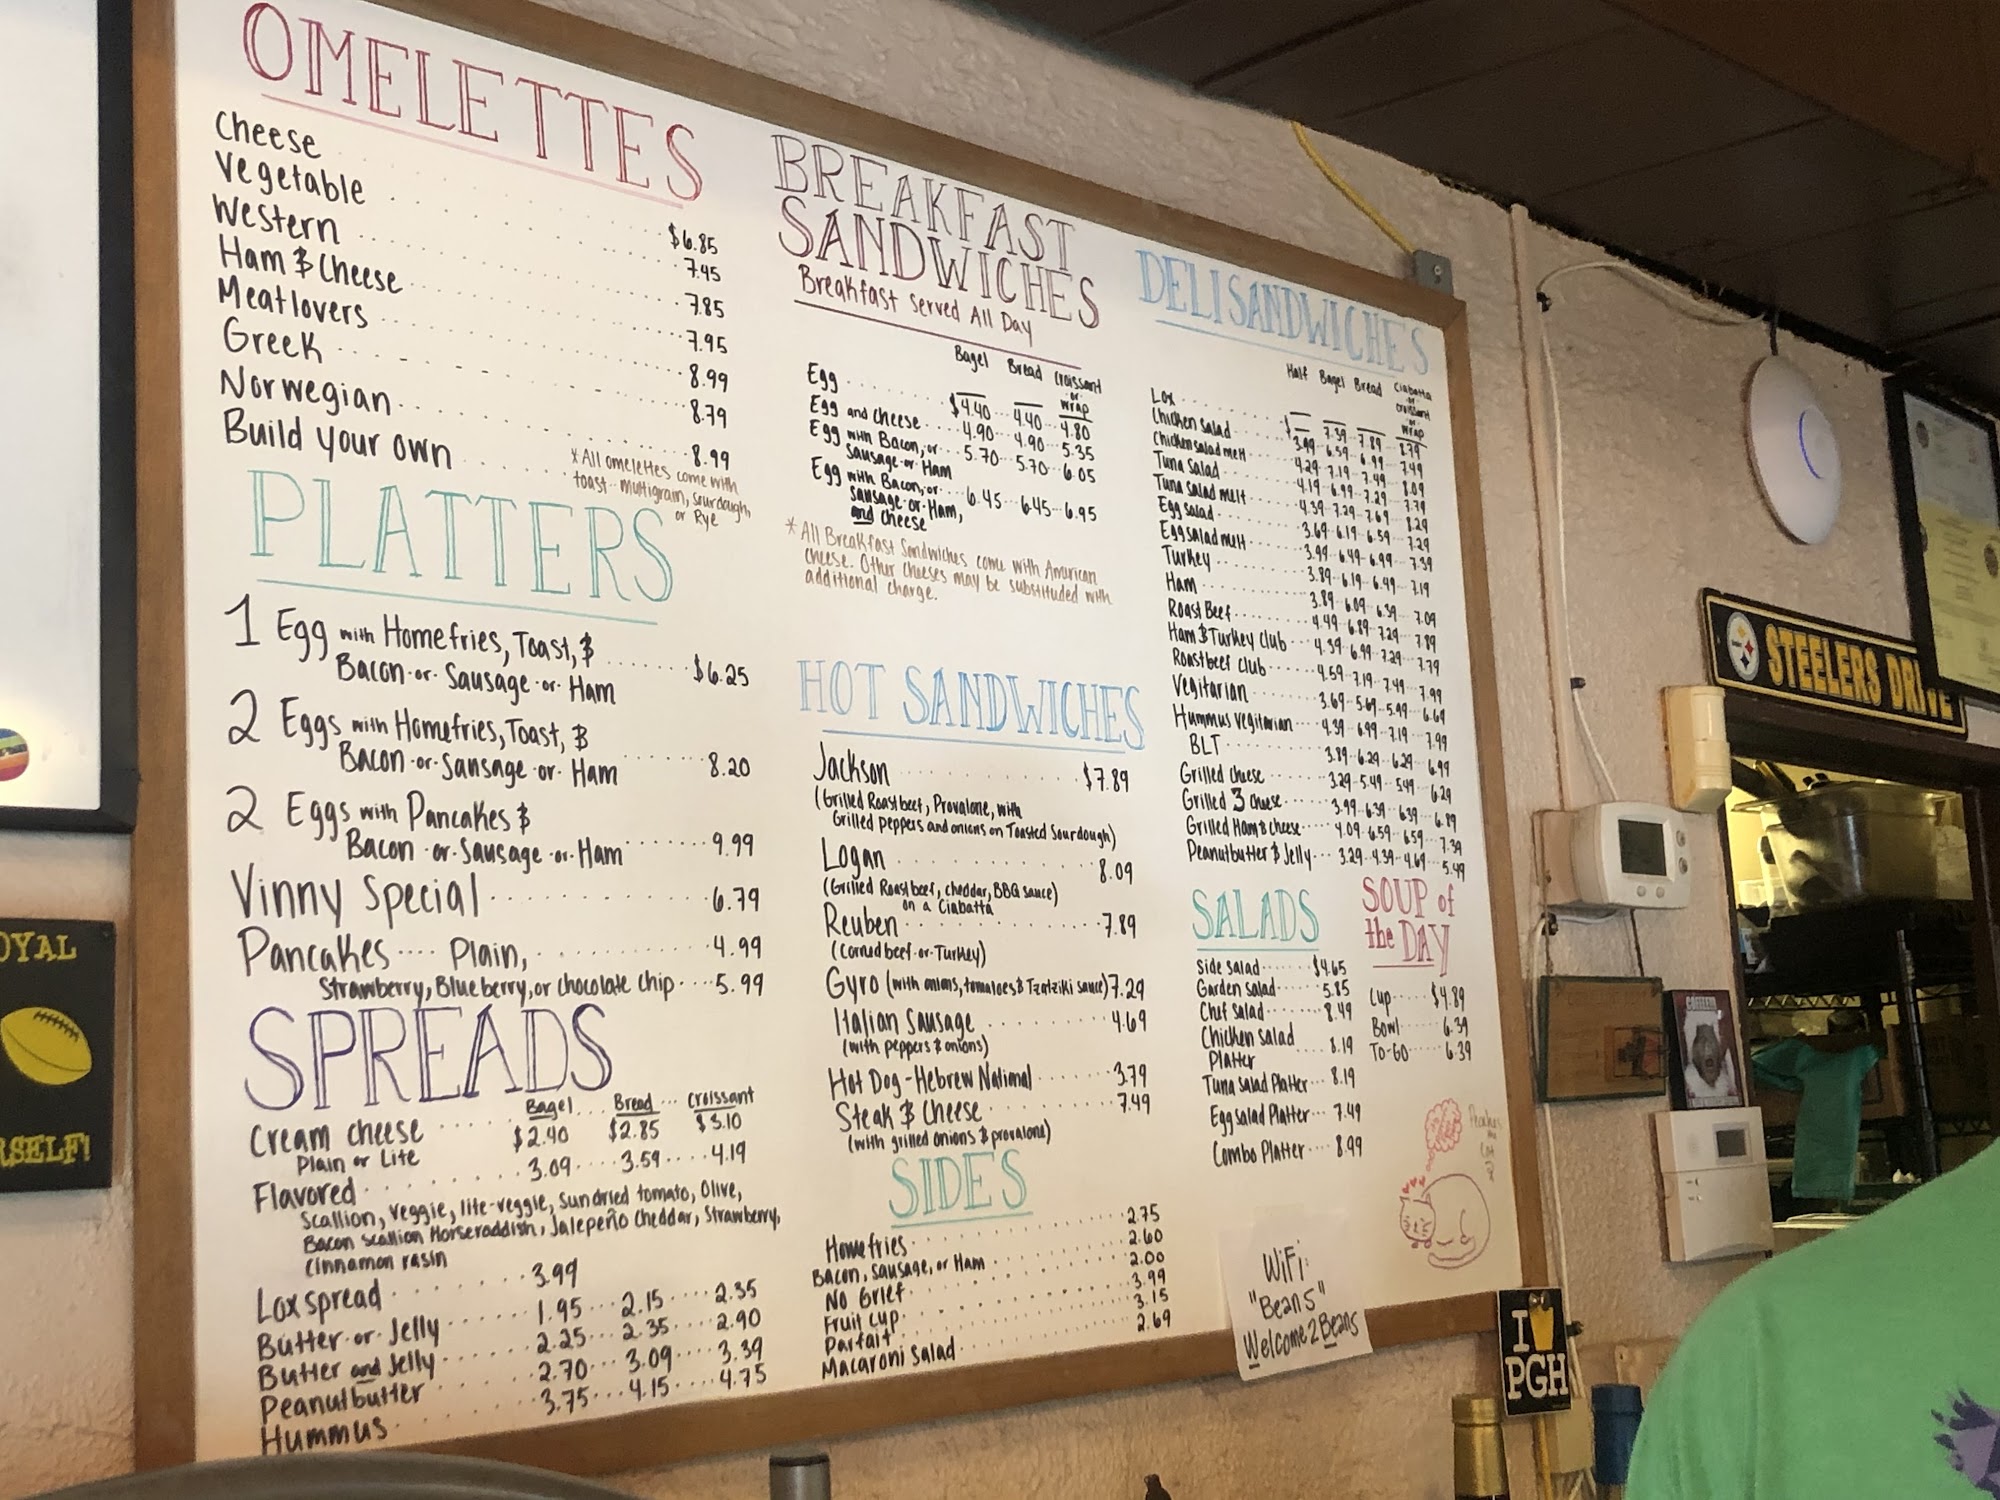 OMELETTES
Cheese $6.85
Vegetable 7.45
Western 7.85
Ham & Cheese 7.95
Meatlovers 8.99
Greek 8.79
Norwegian 8.99
Build your own
*All omelettes come with
toast - multigrain, sourdough,
or Rye
PLATTERS
1 Egg with Homefries, Toast, &
Bacon-or-Sausage-or-Ham $6.25
2 Eggs with Homefries, Toast, &
Bacon-or-Sansage-or-Ham 8.20
2 Eggs with Pancakes &
Bacon-or-Sausage-or-Ham 9.99
Vinny Special 6.79
Pancakes Plain, 4.99
Strawberry, Blueberry, or Chocolate Chip 5.99
SPREADS
Bagel Bread Croissant
Cream Cheese $2.40 $2.85 $3.10
Plain or Lite
Flavored 3.09 3.59 4.19
Scallion, Veggie, lite-veggie, Sundried tomato, Olive,
Bacon Scallion Horseraddish, Jalepeño Cheddar, Strawberry,
Cinnamon rasin
Lox spread 3.99
Butter-or-Jelly 1.95 2.15 2.35
Butter and Jelly 2.25 2.35 2.90
Peanutbutter 2.70 3.09 3.39
Hummus 3.75 4.15 4.75
BREAKFAST
SANDWICHES
Breakfast Served All Day
Bagel Bread Croissant
or
wrap
Egg $4.40 4.40 4.80
Egg and Cheese 4.90 4.90 5.35
Egg with Bacon, or 5.70 5.70 6.05
Sausage-or Ham
Egg with Bacon, or 6.45 6.45 6.95
Sausage-or-Ham,
and Cheese
*All Breakfast Sandwiches come with American
cheese. Other cheeses may be substituted with
additional charge.
HOT SANDWICHES
Jackson $7.89
(Grilled Roastbeef, Provalone, with
Grilled peppers and onions on Toasted Sourdough)
Logan 8.09
(Grilled Roastbeef, Cheddar, BBQ sauce)
on a Ciabatta
Reuben 7.89
(Corned beef-or-Turkey)
Gyro (with onions, tomatoes & Tzatziki sauce) 7.29
Italian Sausage 4.69
(with peppers & onions)
Hot Dog - Hebrew National 3.79
Steak & Cheese 7.49
(with grilled onions & provalone)
SIDES
Homefries 2.75
Bacon, Sausage, or Ham 2.60
No Grief 2.00
Fruit Cup 3.99
Parfait 3.15
Macaroni Salad 2.69
DELI SANDWICHE'S
Half Bagel Bread Ciabatta
or
Croissant
or
wrap
Lox $ — 7.39 7.89 8.79
Chicken Salad 3.99 6.59 6.99 7.49
Chicken salad melt 4.29 7.19 7.49 8.09
Tuna Salad 4.19 6.99 7.29 7.79
Tuna Salad melt 4.39 7.29 7.69 8.29
Egg Salad 3.69 6.19 6.59 7.29
Egg salad melt 3.99 6.49 6.99 7.39
Turkey 3.89 6.19 6.49 7.19
Ham 3.89 6.09 6.39 7.09
Roast Beef 4.49 6.89 7.29 7.89
Ham & Turkey Club 4.39 6.99 7.29 7.79
Roastbeef Club 4.59 7.19 7.49 7.99
Vegitarian 3.69 5.69 5.99 6.69
Hummus Vegitarian 4.39 6.99 7.19 7.99
BLT 3.89 6.29 6.29 6.99
Grilled Cheese 3.29 5.49 5.49 6.29
Grilled 3 Cheese 3.99 6.39 6.39 6.89
Grilled Ham & Cheese 4.09 6.59 6.59 7.39
Peanutbutter & Jelly 3.29 4.39 4.69 5.49
SALADS
Side Salad $4.65
Garden Salad 5.85
Chef Salad 8.49
Chicken Salad
Platter 8.19
Tuna Salad Platter 8.19
Egg Salad Platter 7.49
Combo Platter 8.99
SOUP of
the DAY
Cup $4.89
Bowl 6.39
To-Go 6.39
WiFi:
"Beans"
Welcome2Beans
STEELERS DRIVE
I
PGH
OYAL
RSELF!